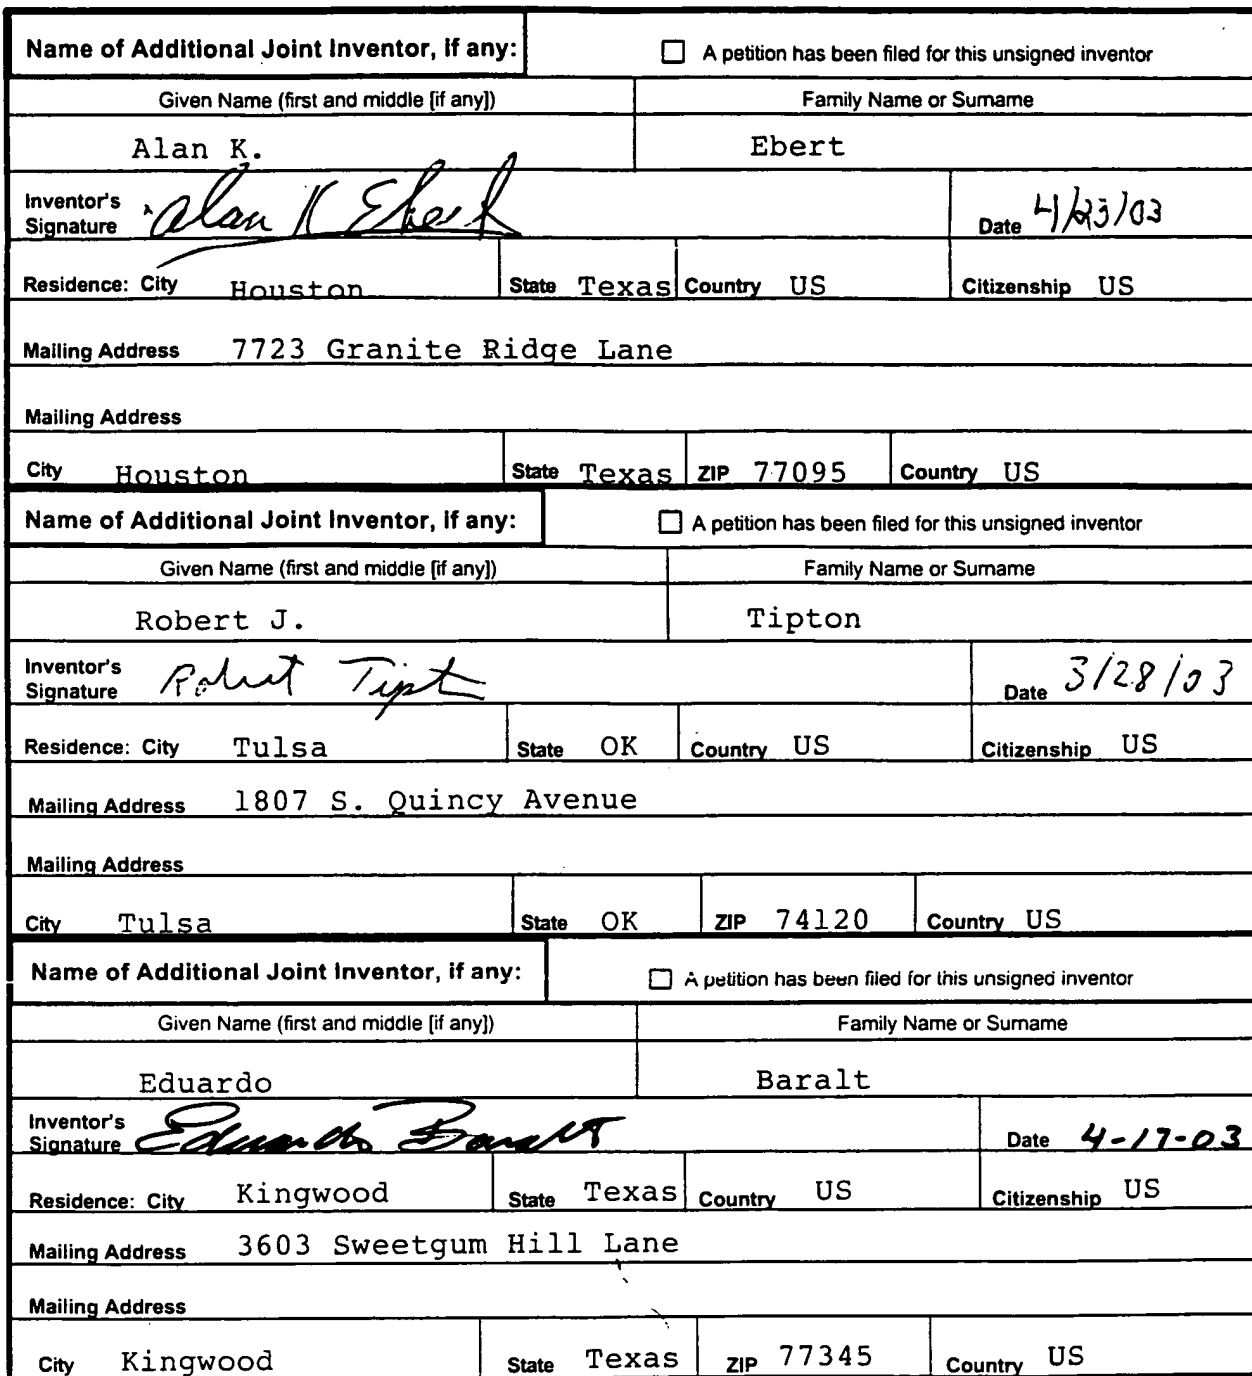 Name of Additional Joint Inventor, if any: A petition has been filed for this unsigned inventor
Given Name (first and middle [if any]) Family Name or Surname
Alan K. Ebert
Inventor's Signature Alan K Ebert Date 4/23/03
Residence: City Houston State Texas Country US Citizenship US
Mailing Address 7723 Granite Ridge Lane
Mailing Address
City Houston State Texas ZIP 77095 Country US
Name of Additional Joint Inventor, if any: A petition has been filed for this unsigned inventor
Given Name (first and middle [if any]) Family Name or Surname
Robert J. Tipton
Inventor's Signature Robert Tipton Date 3/28/03
Residence: City Tulsa State OK Country US Citizenship US
Mailing Address 1807 S. Quincy Avenue
Mailing Address
City Tulsa State OK ZIP 74120 Country US
Name of Additional Joint Inventor, if any: A petition has been filed for this unsigned inventor
Given Name (first and middle [if any]) Family Name or Surname
Eduardo Baralt
Inventor's Signature Eduardo Baralt Date 4-17-03
Residence: City Kingwood State Texas Country US Citizenship US
Mailing Address 3603 Sweetgum Hill Lane
Mailing Address
City Kingwood State Texas ZIP 77345 Country US